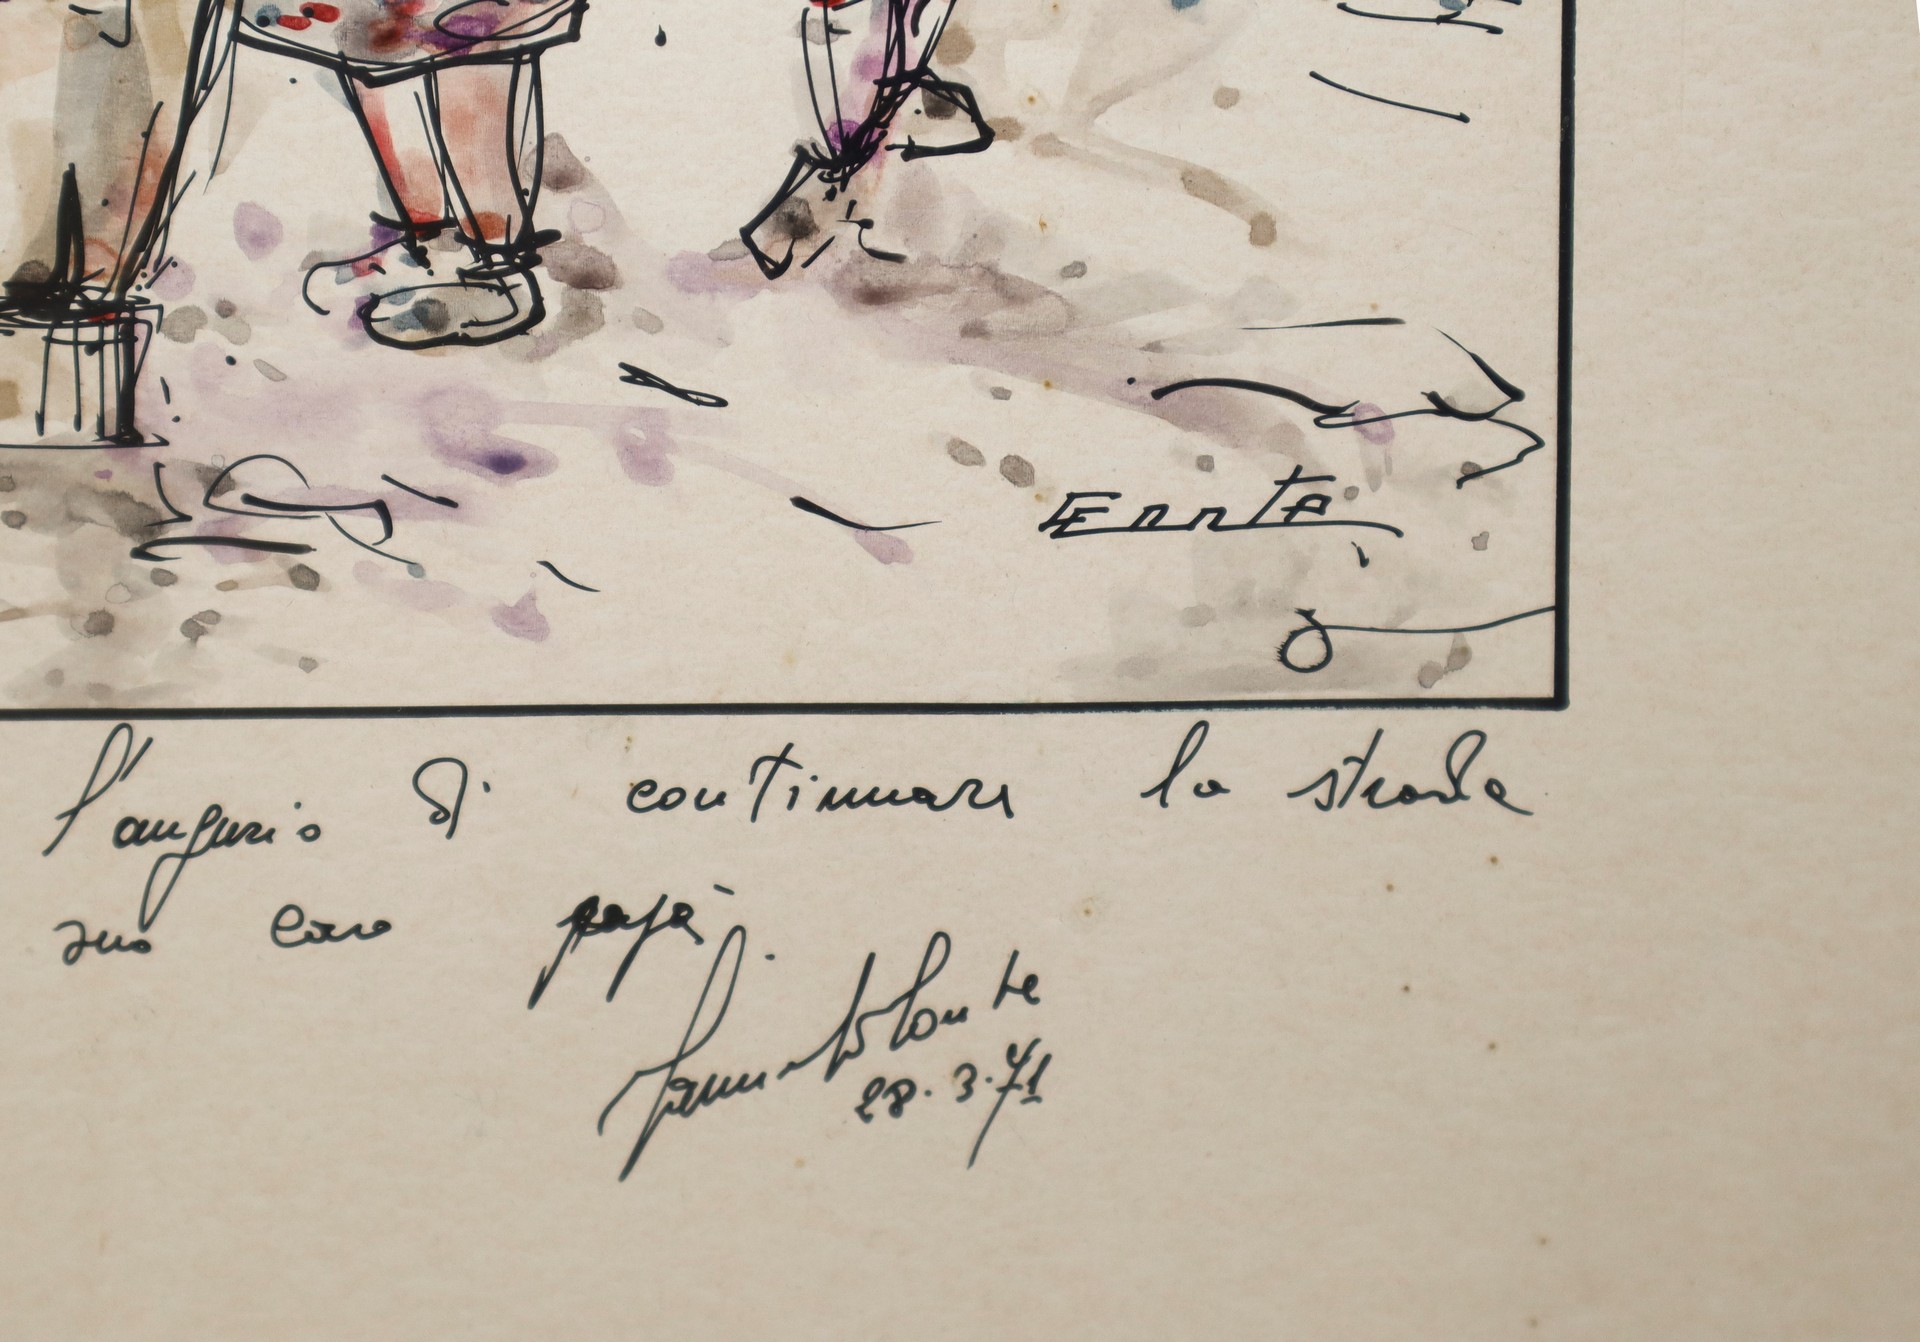 l'augurio di continuare la strada
suo caro papà
28.3.71